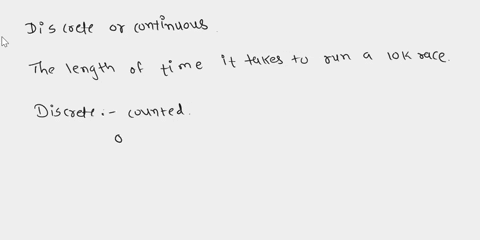 Discrete or continuous.
The length of time it takes to run a 10K race.
Discrete :- counted.
0